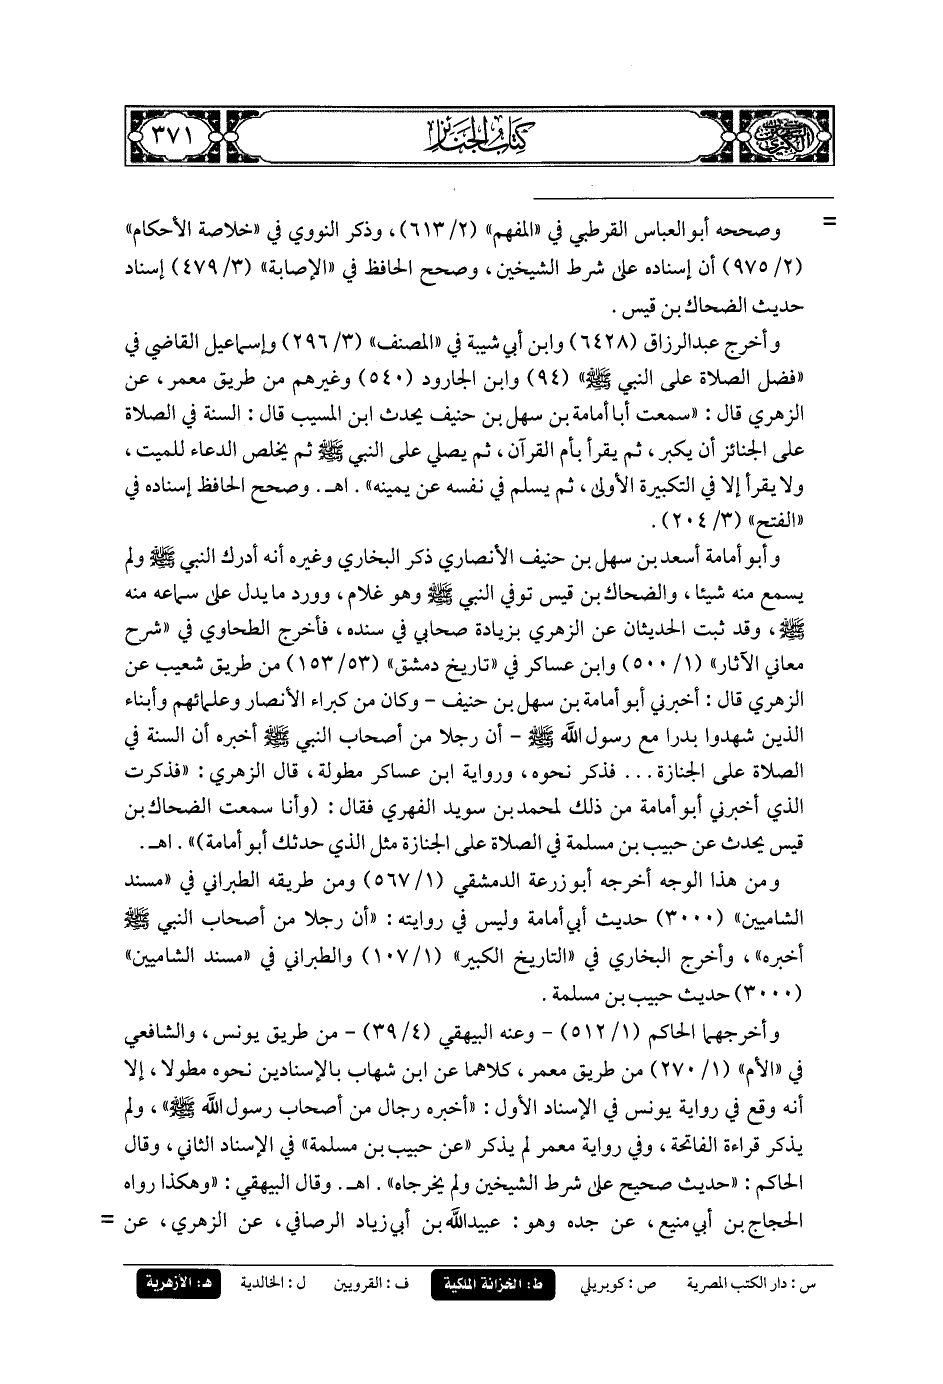 ٣٧١
كتاب الجنائز
السنن الكبرى
= وصححه أبو العباس القرطبي في «المفهم» (٢/ ٦١٣)، وذكر النووي في «خلاصة الأحكام»
(٢/ ٩٧٥) أن إسناده على شرط الشيخين، وصحح الحافظ في «الإصابة» (٣/ ٤٧٩) إسناد
حديث الضحاك بن قيس.
وأخرج عبدالرزاق (٦٤٢٨) وابن أبي شيبة في «المصنف» (٣/ ٢٩٦) وإسماعيل القاضي في
«فضل الصلاة على النبي ﷺ» (٩٤) وابن الجارود (٥٤٠) وغيرهم من طريق معمر، عن
الزهري قال: «سمعت أبا أمامة بن سهل بن حنيف يحدث ابن المسيب قال: السنة في الصلاة
على الجنائز أن يكبر، ثم يقرأ بأم القرآن، ثم يصلي على النبي ﷺ ثم يخلص الدعاء للميت،
ولا يقرأ إلا في التكبيرة الأولى، ثم يسلم في نفسه عن يمينه». اهـ. وصحح الحافظ إسناده في
«الفتح» (٣/ ٢٠٤).
وأبو أمامة أسعد بن سهل بن حنيف الأنصاري ذكر البخاري وغيره أنه أدرك النبي ﷺ ولم
يسمع منه شيئا، والضحاك بن قيس توفي النبي ﷺ وهو غلام، وورد ما يدل على سماعه منه
ﷺ، وقد ثبت الحديثان عن الزهري بزيادة صحابي في سنده، فأخرج الطحاوي في «شرح
معاني الآثار» (١/ ٥٠٠) وابن عساكر في «تاريخ دمشق» (٥٣/ ١٥٣) من طريق شعيب عن
الزهري قال: أخبرني أبو أمامة بن سهل بن حنيف - وكان من كبراء الأنصار وعلمائهم وأبناء
الذين شهدوا بدرا مع رسول الله ﷺ - أن رجلا من أصحاب النبي ﷺ أخبره أن السنة في
الصلاة على الجنازة... فذكر نحوه، ورواية ابن عساكر مطولة، قال الزهري: «فذكرت
الذي أخبرني أبو أمامة من ذلك لمحمد بن سويد الفهري فقال: (وأنا سمعت الضحاك بن
قيس يحدث عن حبيب بن مسلمة في الصلاة على الجنازة مثل الذي حدثك أبو أمامة)». اهـ.
ومن هذا الوجه أخرجه أبو زرعة الدمشقي (١/ ٥٦٧) ومن طريقه الطبراني في «مسند
الشاميين» (٣٠٠٠) حديث أبي أمامة وليس في روايته: «أن رجلا من أصحاب النبي ﷺ
أخبره»، وأخرج البخاري في «التاريخ الكبير» (١/ ١٠٧) والطبراني في «مسند الشاميين»
(٣٠٠٠) حديث حبيب بن مسلمة.
وأخرجهما الحاكم (١/ ٥١٢) - وعنه البيهقي (٤/ ٣٩) - من طريق يونس، والشافعي
في «الأم» (١/ ٢٧٠) من طريق معمر، كلاهما عن ابن شهاب بالإسنادين نحوه مطولا، إلا
أنه وقع في رواية يونس في الإسناد الأول: «أخبره رجال من أصحاب رسول الله ﷺ»، ولم
يذكر قراءة الفاتحة، وفي رواية معمر لم يذكر «عن حبيب بن مسلمة» في الإسناد الثاني، وقال
الحاكم: «حديث صحيح على شرط الشيخين ولم يخرجاه». اهـ. وقال البيهقي: «وهكذا رواه
الحجاج بن أبي منيع، عن جده وهو: عبيدالله بن أبي زياد الرصافي، عن الزهري، عن =
س: دار الكتب المصرية ص: كوبريلي ط: الخزانة الملكية ف: القرويين ل: الخالدية هـ: الأزهرية